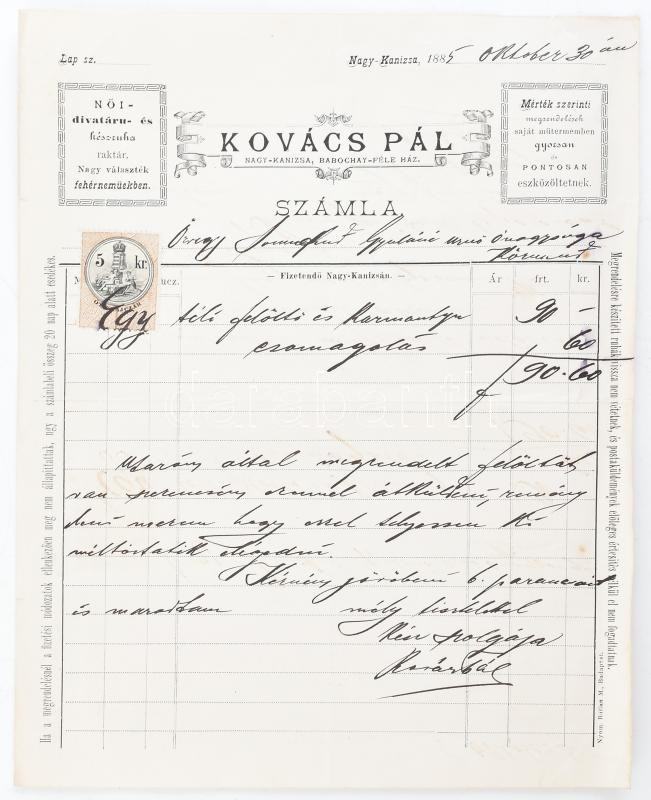 Lap sz.
Nagy-Kanizsa, 1885 Oktober 30 án
NŐI-
divatáru- és
készruha
raktár.
Nagy választék
fehérneműekben.
KOVÁCS PÁL
NAGY-KANIZSA, BABOCHAY-FÉLE HÁZ.
Mérték szerinti
megrendelések
saját műtermemben
gyorsan
és
PONTOSAN
eszközöltetnek.
SZÁMLA
Özvegy Gyuláné urnő önagysága
Körmend
5 kr.
— Fizetendő Nagy-Kanizsán. — Ár frt. kr.
Egy téli felöltő és Karmantyu 90 –
csomagolás 60
f 90·60
által megrendelt felöltőt
van szerencsém ezennel átküldeni, remény
hogy ezzel telyessen Ki
méltóztatik elégedni.
b. parancsait
és maradtam mély tisztelettel
Kész szolgája
Kovács Pál
Ha a megrendelésnél a fizetési módozatok ellenkezően meg nem állapíttattak, ugy a számlabeli összeg 20 nap alatt esedékes.
Megrendelésre készített ruhák vissza nem vétetnek, és postaküldemények előleges értesítés nélkül el nem fogadtatnak.